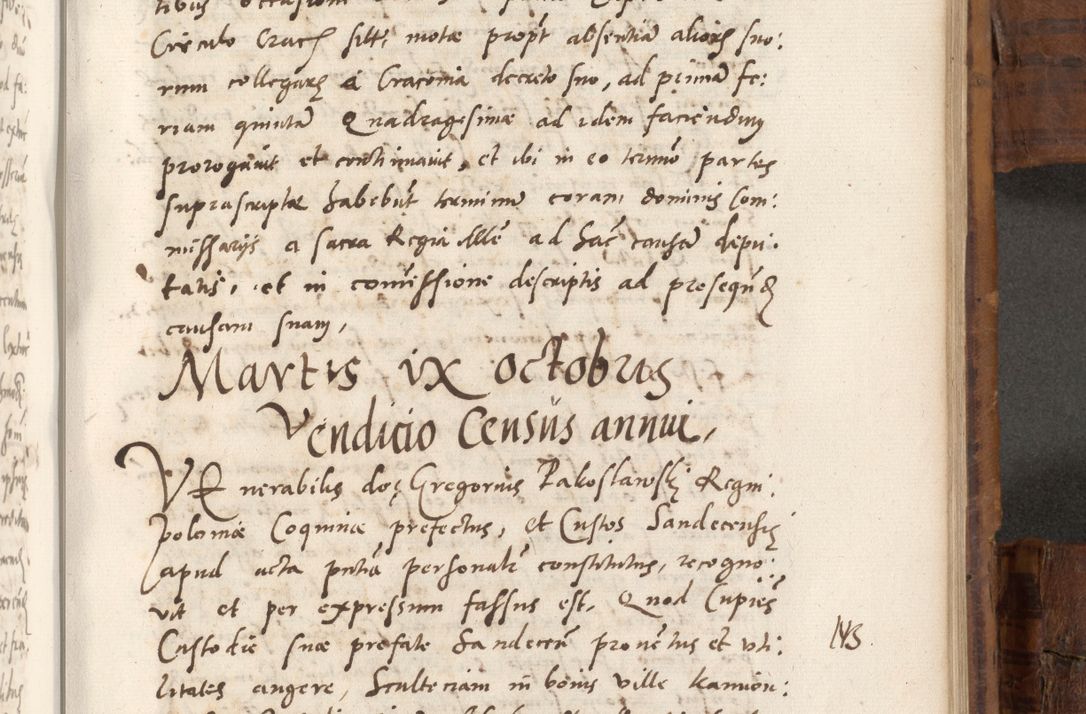 Circulo Cracoᷤ sibi, motæ propt absentiā alioꝝ suo:
rum collegaꝝ a Craconia decreto suo, ad primā fe:
riam quintā Quadragesimæ ad idem faciendum
prorogavit et continuavit, et ibi in eo termīo partes
suprascriptæ habebūt terminū coram dominis Com:
missarijs a sacra Regia Mtte ad hāc causam depu:
tatis, et in cōmissione descriptis ad prosequēd
causam suam,
Martis ix octobris
Venditio Census annui,
VEnerabilis dns Gregorius Pakoslawskj Regni
Poloniæ Coquinæ prefectus, et Custos Sandecensis
apud acta pntiā personalr constitutus, recogno:
vit et per expressum fassus est, Quod Cupiēs
Custodie suæ prefate Sandeceñ proventus et uti:
litates augere, Scultetiam in bonis ville Kamion:
NB.